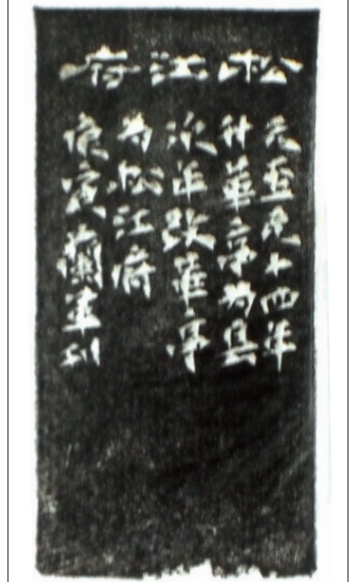 松江府
元至元十四年
升華亭為县
次年改華亭
为松江府
庚寅蘭